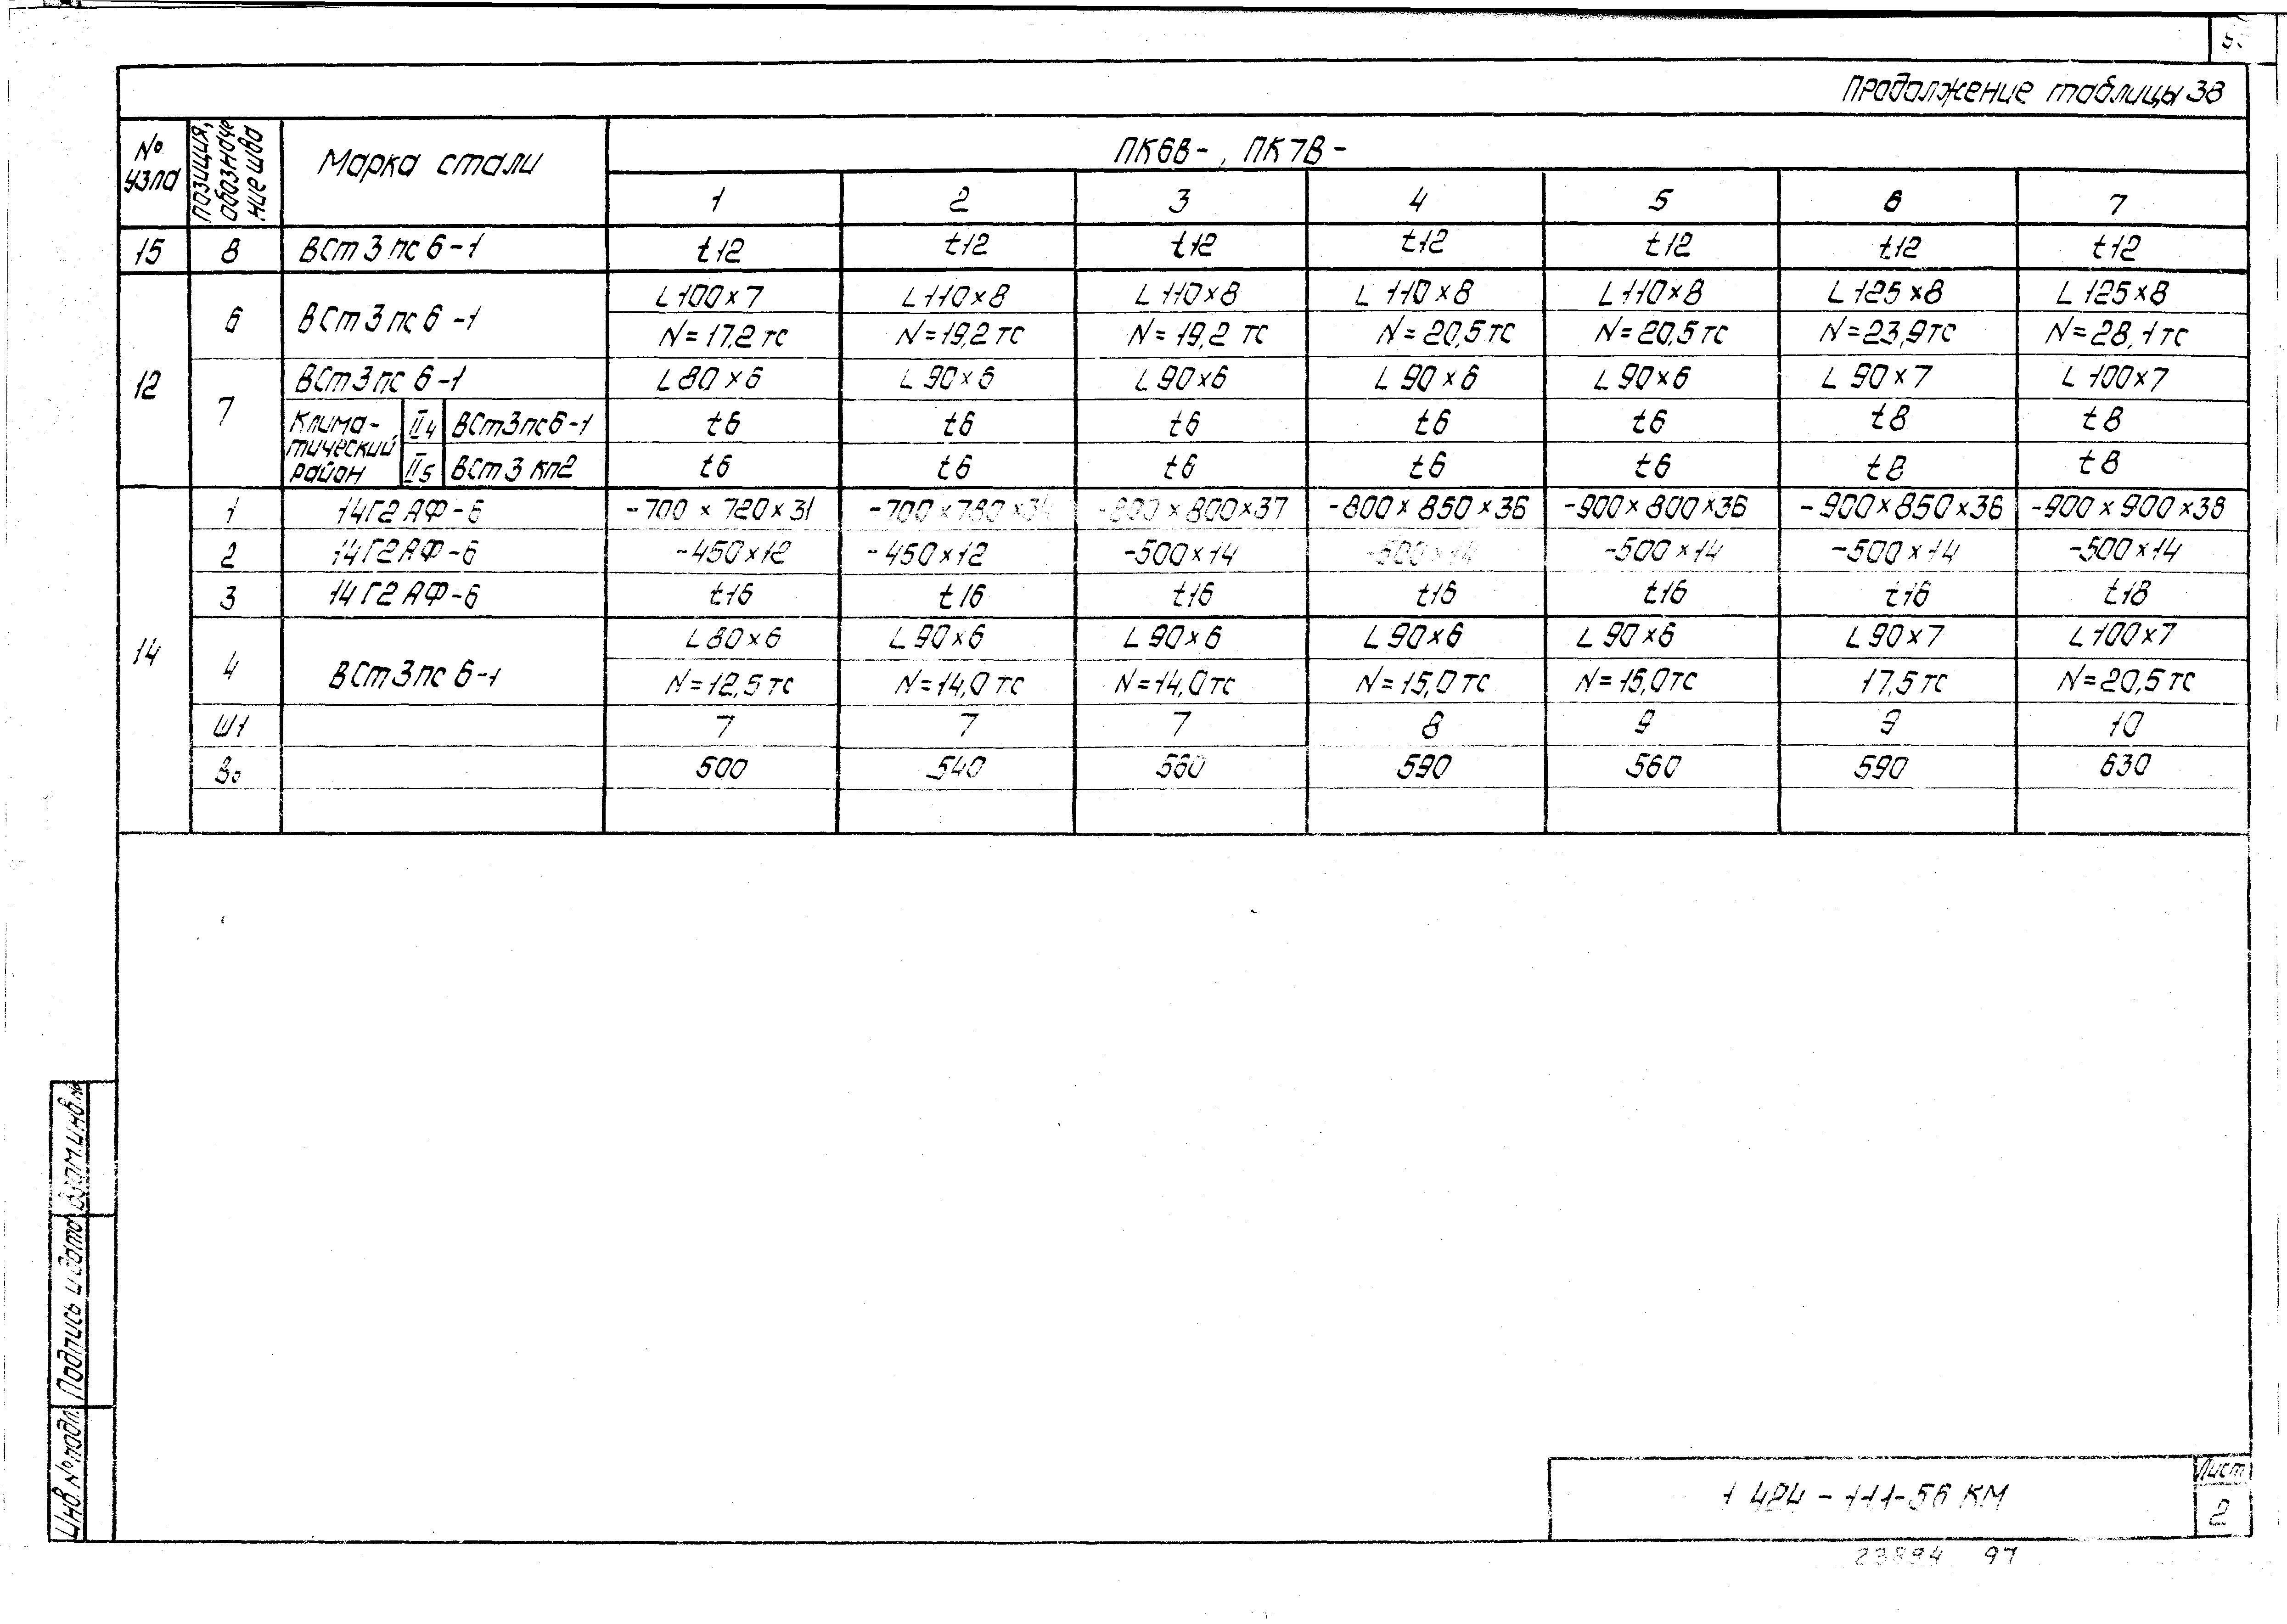 Продолжение таблицы 38
№ узла | позиция, обозначение шва | Марка стали | ПК6В- , ПК7В-
1 | 2 | 3 | 4 | 5 | 6 | 7
15 | 8 | ВСт3пс6-1 | t12 | t12 | t12 | t12 | t12 | t12 | t12
12 | 6 | ВСт3пс6-1 | L100×7 | L110×8 | L110×8 | L110×8 | L110×8 | L125×8 | L125×8
N=17,2тс | N=19,2тс | N=19,2тс | N=20,5тс | N=20,5тс | N=23,9тс | N=28,1тс
7 | ВСт3пс6-1 | L80×6 | L90×6 | L90×6 | L90×6 | L90×6 | L90×7 | L100×7
Климатический район | II4 | ВСт3пс6-1 | t6 | t6 | t6 | t6 | t6 | t8 | t8
II5 | ВСт3кп2 | t6 | t6 | t6 | t6 | t6 | t8 | t8
14 | 1 | 14Г2АФ-6 | -700×720×31 | -700×780×3 | -800×800×37 | -800×850×36 | -900×800×36 | -900×850×36 | -900×900×38
2 | 14Г2АФ-6 | -450×12 | -450×12 | -500×14 | -500×14 | -500×14 | -500×14 | -500×14
3 | 14Г2АФ-6 | t16 | t16 | t16 | t16 | t16 | t16 | t18
4 | ВСт3пс6-1 | L80×6 | L90×6 | L90×6 | L90×6 | L90×6 | L90×7 | L100×7
N=12,5тс | N=14,0тс | N=14,0тс | N=15,0тс | N=15,0тс | 17,5тс | N=20,5тс
Ш1 | 7 | 7 | 7 | 8 | 9 | 9 | 10
Во | 500 | 540 | 560 | 590 | 560 | 590 | 630
Взам.инв.№
Подпись и дата
Инв.№подл.
1 424-111-56 КМ
Лист
2
23894 97